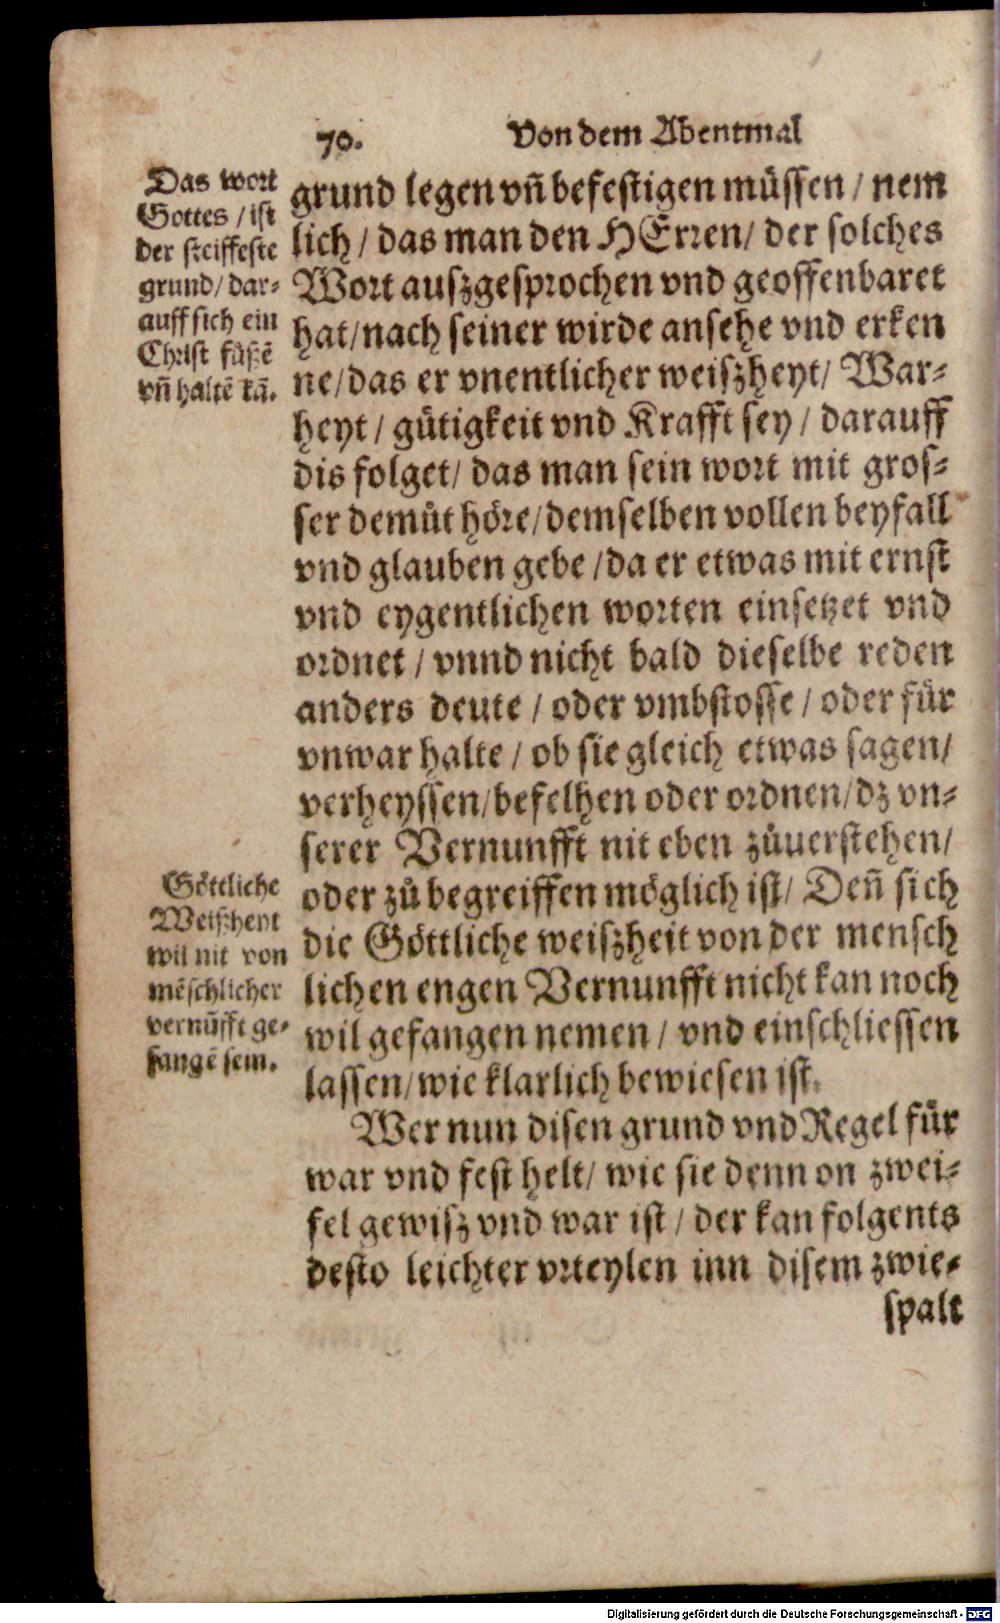 70. Von dem Abentmal
Das wort
Gottes / ist
der steiffeste
grund / dar⸗
auff sich ein
Christ fůßē
vñ haltē kā.
grund legen vñ befestigen müssen / nem
lich / das man den HErren / der solches
Wort auszgesprochen vnd geoffenbaret
hat / nach seiner wirde ansehe vnd erken
ne / das er vnentlicher weiszheyt / War⸗
heyt / gütigkeit vnd Krafft sey / darauff
dis folget / das man sein wort mit gros⸗
ser demůt höre / demselben vollen beyfall
vnd glauben gebe / da er etwas mit ernst
vnd eygentlichen worten einsetzet vnd
ordnet / vnnd nicht bald dieselbe reden
anders deute / oder vmbstosse / oder für
vnwar halte / ob sie gleich etwas sagen /
verheyssen / befelhen oder ordnen / dz vn⸗
serer Vernunfft nit eben zůuerstehen /
oder zů begreiffen möglich ist / Deñ sich
die Göttliche weiszheit von der mensch
lichen engen Vernunfft nicht kan noch
wil gefangen nemen / vnd einschliessen
lassen / wie klarlich bewiesen ist.
Göttliche
Weißheyt
wil nit von
mēschlicher
vernūfft ge⸗
fangē sein.
Wer nun disen grund vnd Regel für
war vnd fest helt / wie sie denn on zwei⸗
fel gewisz vnd war ist / der kan folgents
desto leichter vrteylen inn disem zwie⸗
spalt
Digitalisierung gefördert durch die Deutsche Forschungsgemeinschaft - DFG